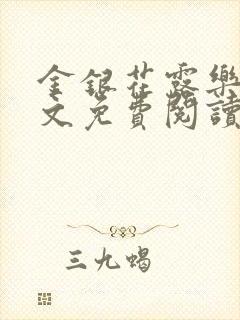 金銀花露樂
文免費閱讀
三九蝎